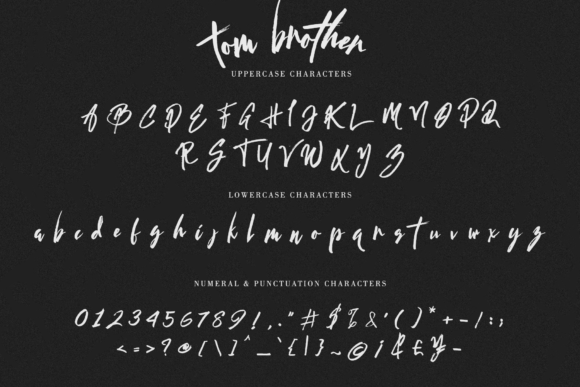 tom brother
UPPERCASE CHARACTERS
A B C D E F G H I J K L M N O P Q
R S T U V W X Y Z
LOWERCASE CHARACTERS
a b c d e f g h i j k l m n o p q r s t u v w x y z
NUMERAL & PUNCTUATION CHARACTERS
0 1 2 3 4 5 6 7 8 9 ! , . " # $ % & ' ( ) * + - / : ;
< = > ? @ [ \ ] ^ _ ` { | } ~ © ¡ ₹ £ ¥ –